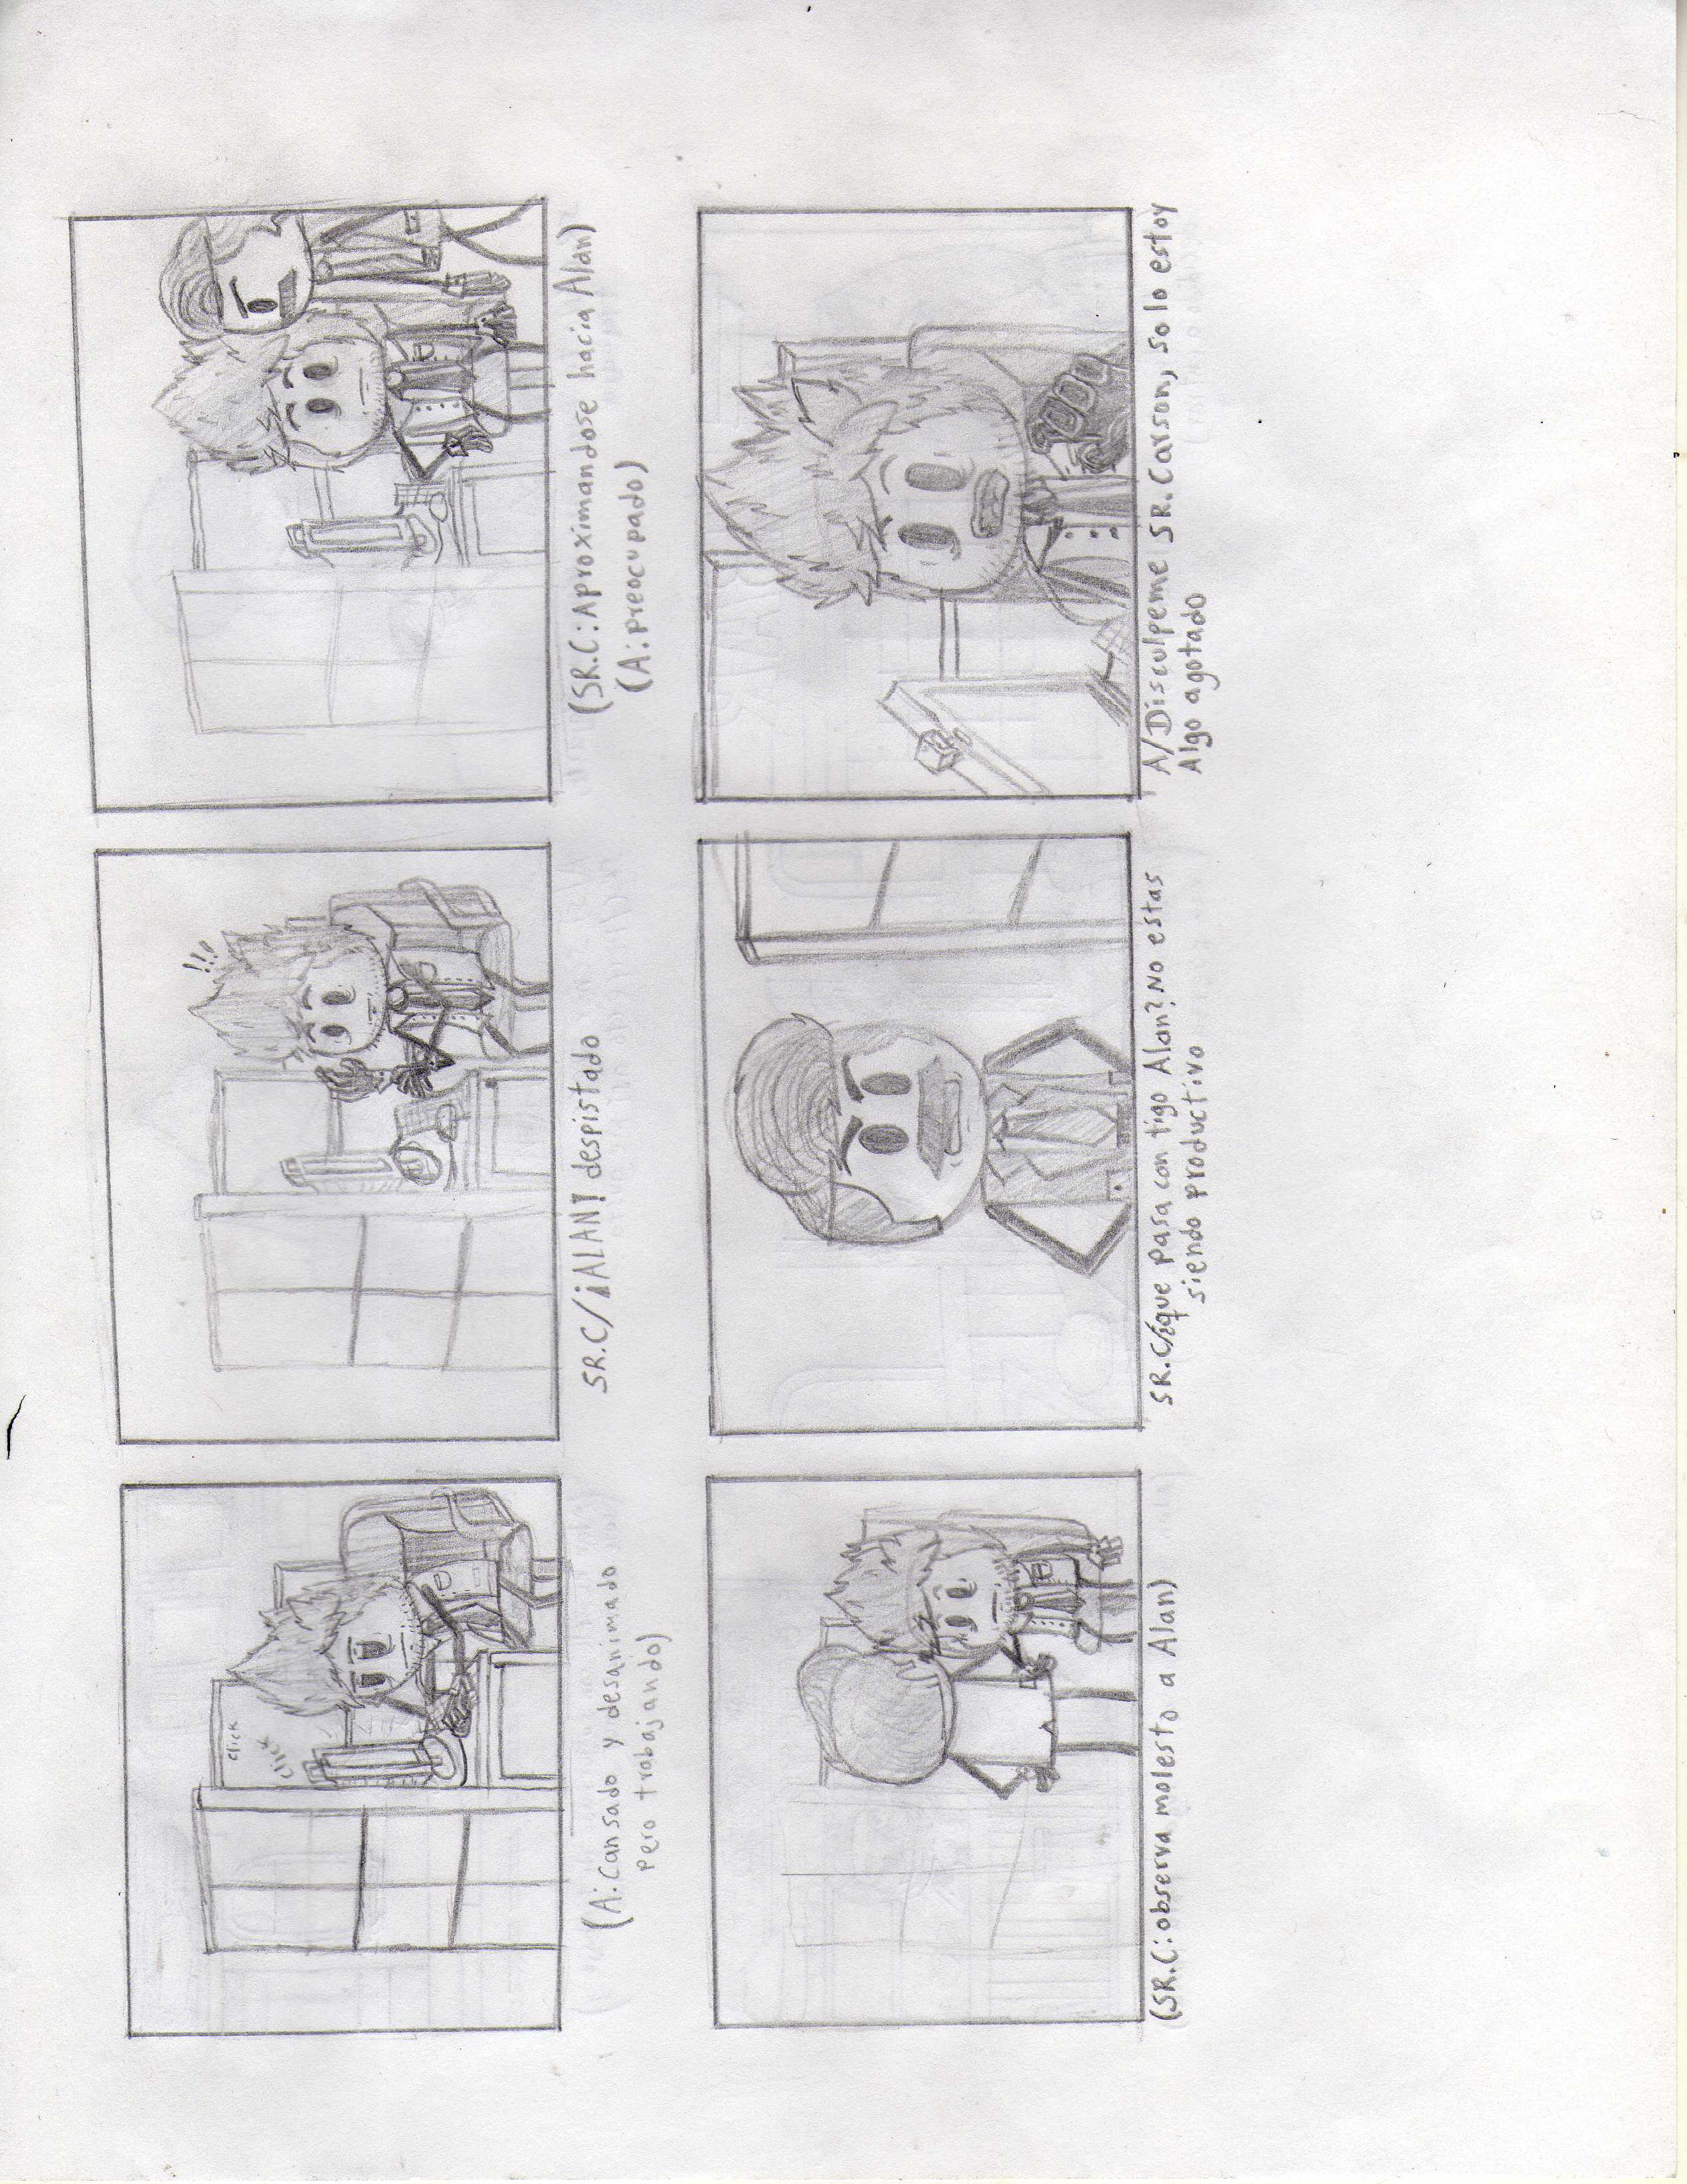 click
click
(A: Cansado y desanimado
pero trabajando)
!!!
SR.C/¡ALAN! despistado
(SR.C: Aproximandose hacia Alan)
(A: preocupado)
(SR.C: observa molesto a Alan)
SR.C/¿que pasa con tigo Alan? No estas
siendo productivo
A/Disculpeme SR. Carson, solo estoy
Algo agotado